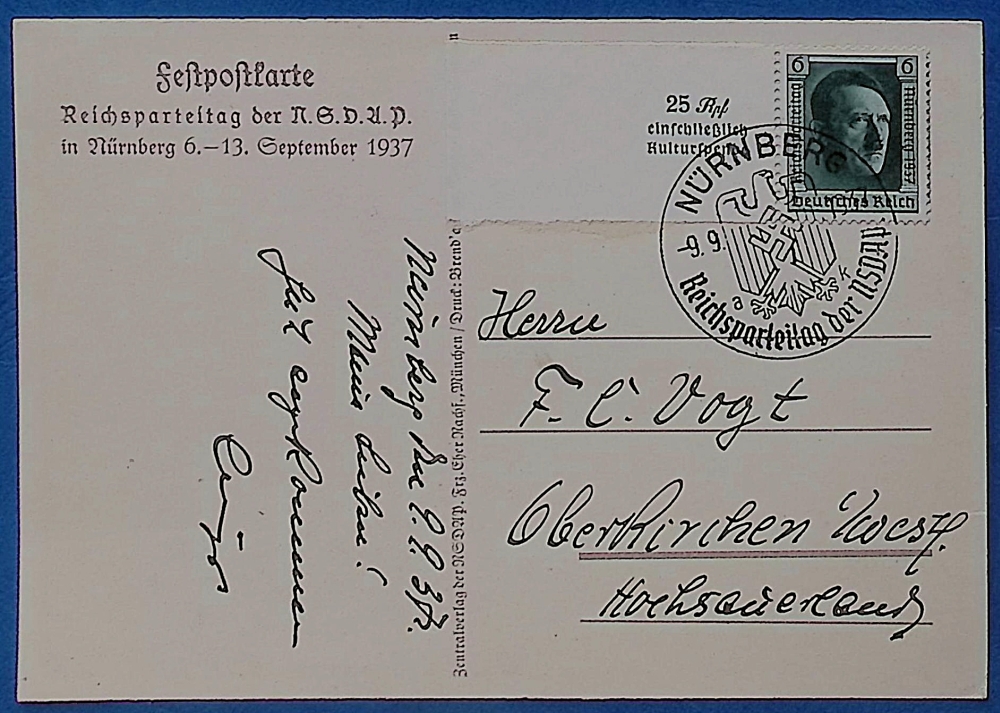 Festpostkarte
Reichsparteitag der N.S.D.A.P.
in Nürnberg 6.–13. September 1937
n
25 Rpf
einschließlich
Kulturspende
6 6
Reichsparteitag
Nürnberg 1937
Deutsches Reich
NÜRNBERG
-9.9. 1937
a k
Reichsparteitag der NSDAP
Zentralverlag der NSDAP. Frz. Eher Nachf., München / Druck: Brend'a
Nürnberg den 9.9.37.
Meine Lieben!
Gut angekommen
Herrn
F. C. Vogt
Oberkirchen Westf.
Hochsauerland